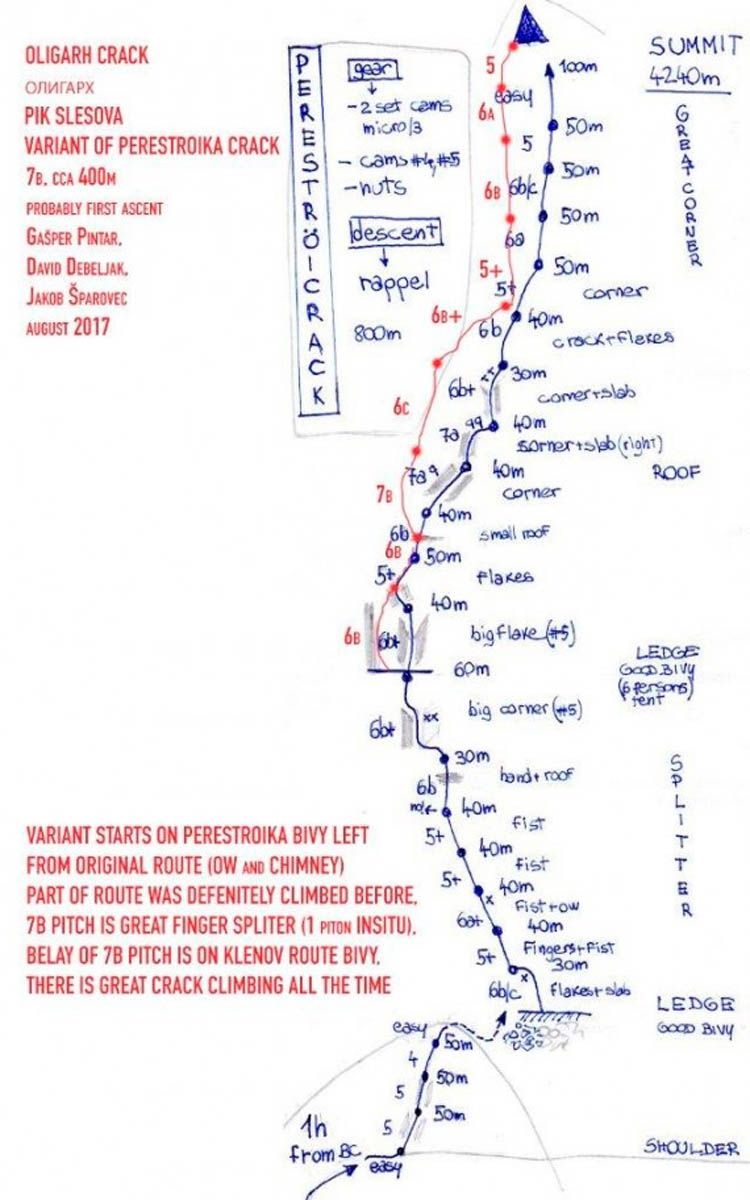 OLIGARH CRACK
ОЛИГАРХ
PIK SLESOVA
VARIANT OF PERESTROIKA CRACK
7B, CCA 400M
PROBABLY FIRST ASCENT
GAŠPER PINTAR,
DAVID DEBELJAK,
JAKOB ŠPAROVEC
AUGUST 2017
PERESTRÖICRACK
gear
- 2 set cams
micro/3
- cams #4, #5
- nuts
descent
rappel
800m
SUMMIT
4240m
GREAT CORNER
5
100m
easy
6A
50m
5
50m
6B
6b/c
50m
6a
50m
5+
5+
corner
6B+
6b
40m
crack+flakes
30m
6b+
corner+slab
6C
40m
7a
corner+slab (right)
ROOF
7a
40m
corner
7B
40m
6b
small roof
6B
50m
5+
flakes
40m
6B
6b+
big flake (#5)
LEDGE
GOOD BIVY
(6 persons)
tent
60m
big corner (#5)
6b+
xx
30m
SPLITTER
hand+roof
6b
40m
fist
5+
40m
fist
5+
40m
x
Fist+ow
6a+
40m
Fingers+Fist
5+
30m
x
6b/c
flakes+slab
LEDGE
GOOD BIVY
VARIANT STARTS ON PERESTROIKA BIVY LEFT
FROM ORIGINAL ROUTE (OW AND CHIMNEY)
PART OF ROUTE WAS DEFENITELY CLIMBED BEFORE,
7B PITCH IS GREAT FINGER SPLITER (1 PITON INSITU),
BELAY OF 7B PITCH IS ON KLENOV ROUTE BIVY,
THERE IS GREAT CRACK CLIMBING ALL THE TIME
easy
50m
4
50m
5
50m
5
1h
from BC
easy
SHOULDER